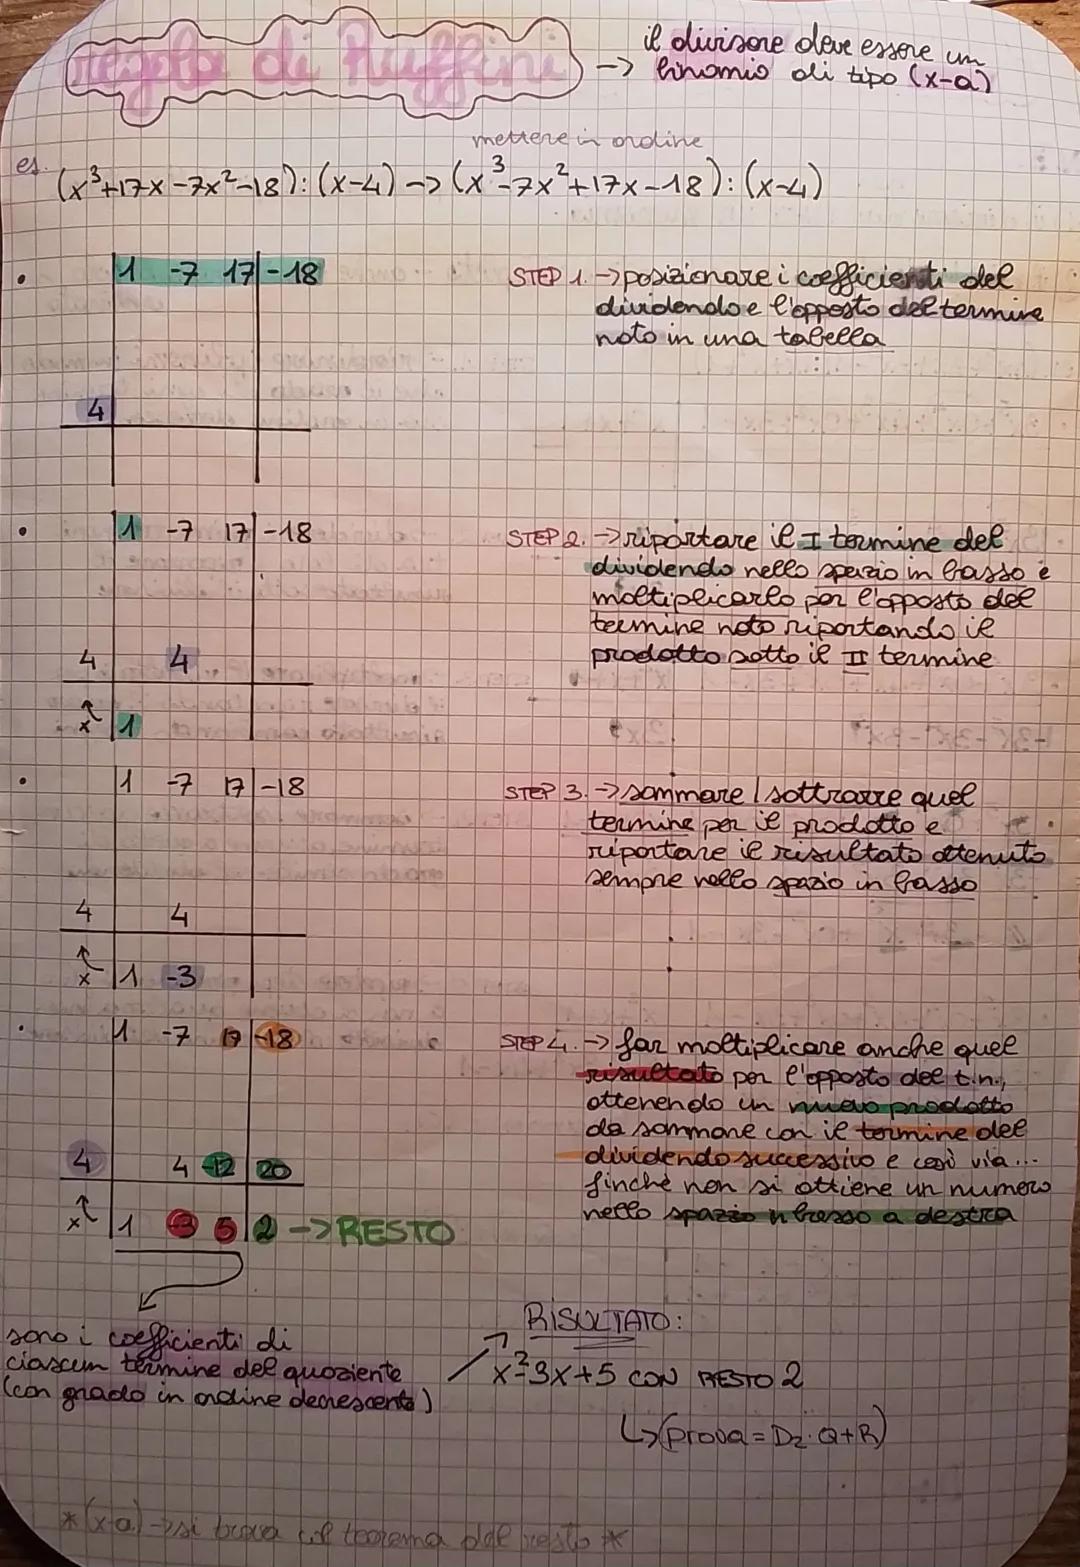 regola di Ruffini
-> il divisore deve essere un
binomio di tipo (x-a)
mettere in ordine
es. (x³+17x-7x²-18):(x-4) -> (x³-7x²+17x-18):(x-4)
• 1 -7 17 -18
4
STEP 1. -> posizionare i coefficienti del
dividendo e l'opposto del termine
noto in una tabella
• 1 -7 17 -18
4 4
x 1
STEP 2. -> riportare il I termine del
dividendo nello spazio in basso e
moltiplicarlo per l'opposto del
termine noto riportando il
prodotto sotto il II termine
• 1 -7 17 -18
4 4
x 1 -3
STEP 3. -> sommare / sottrarre quel
termine per il prodotto e
riportare il risultato ottenuto
sempre nello spazio in basso
• 1 -7 17 -18
4 4 -12 20
x 1 -3 5 2 -> RESTO
STEP 4. -> far moltiplicare anche quel
risultato per l'opposto del t.n.,
ottenendo un nuovo prodotto
da sommare con il termine del
dividendo successivo e così via...
finché non si ottiene un numero
nello spazio in basso a destra
sono i coefficienti di
ciascun termine del quoziente
(con grado in ordine decrescente)
RISULTATO:
x²-3x+5 CON RESTO 2
↳ (prova = D₂·Q+R)
*(x-a) -> si trova col teorema del resto *